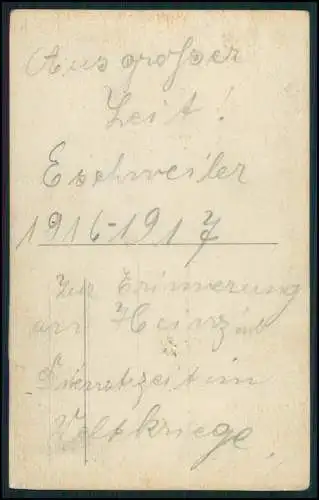 Aus großer
Zeit!
Eschweiler
1916-1917
Zur Erinnerung
an Heinz
Dienstzeit im
Weltkriege.